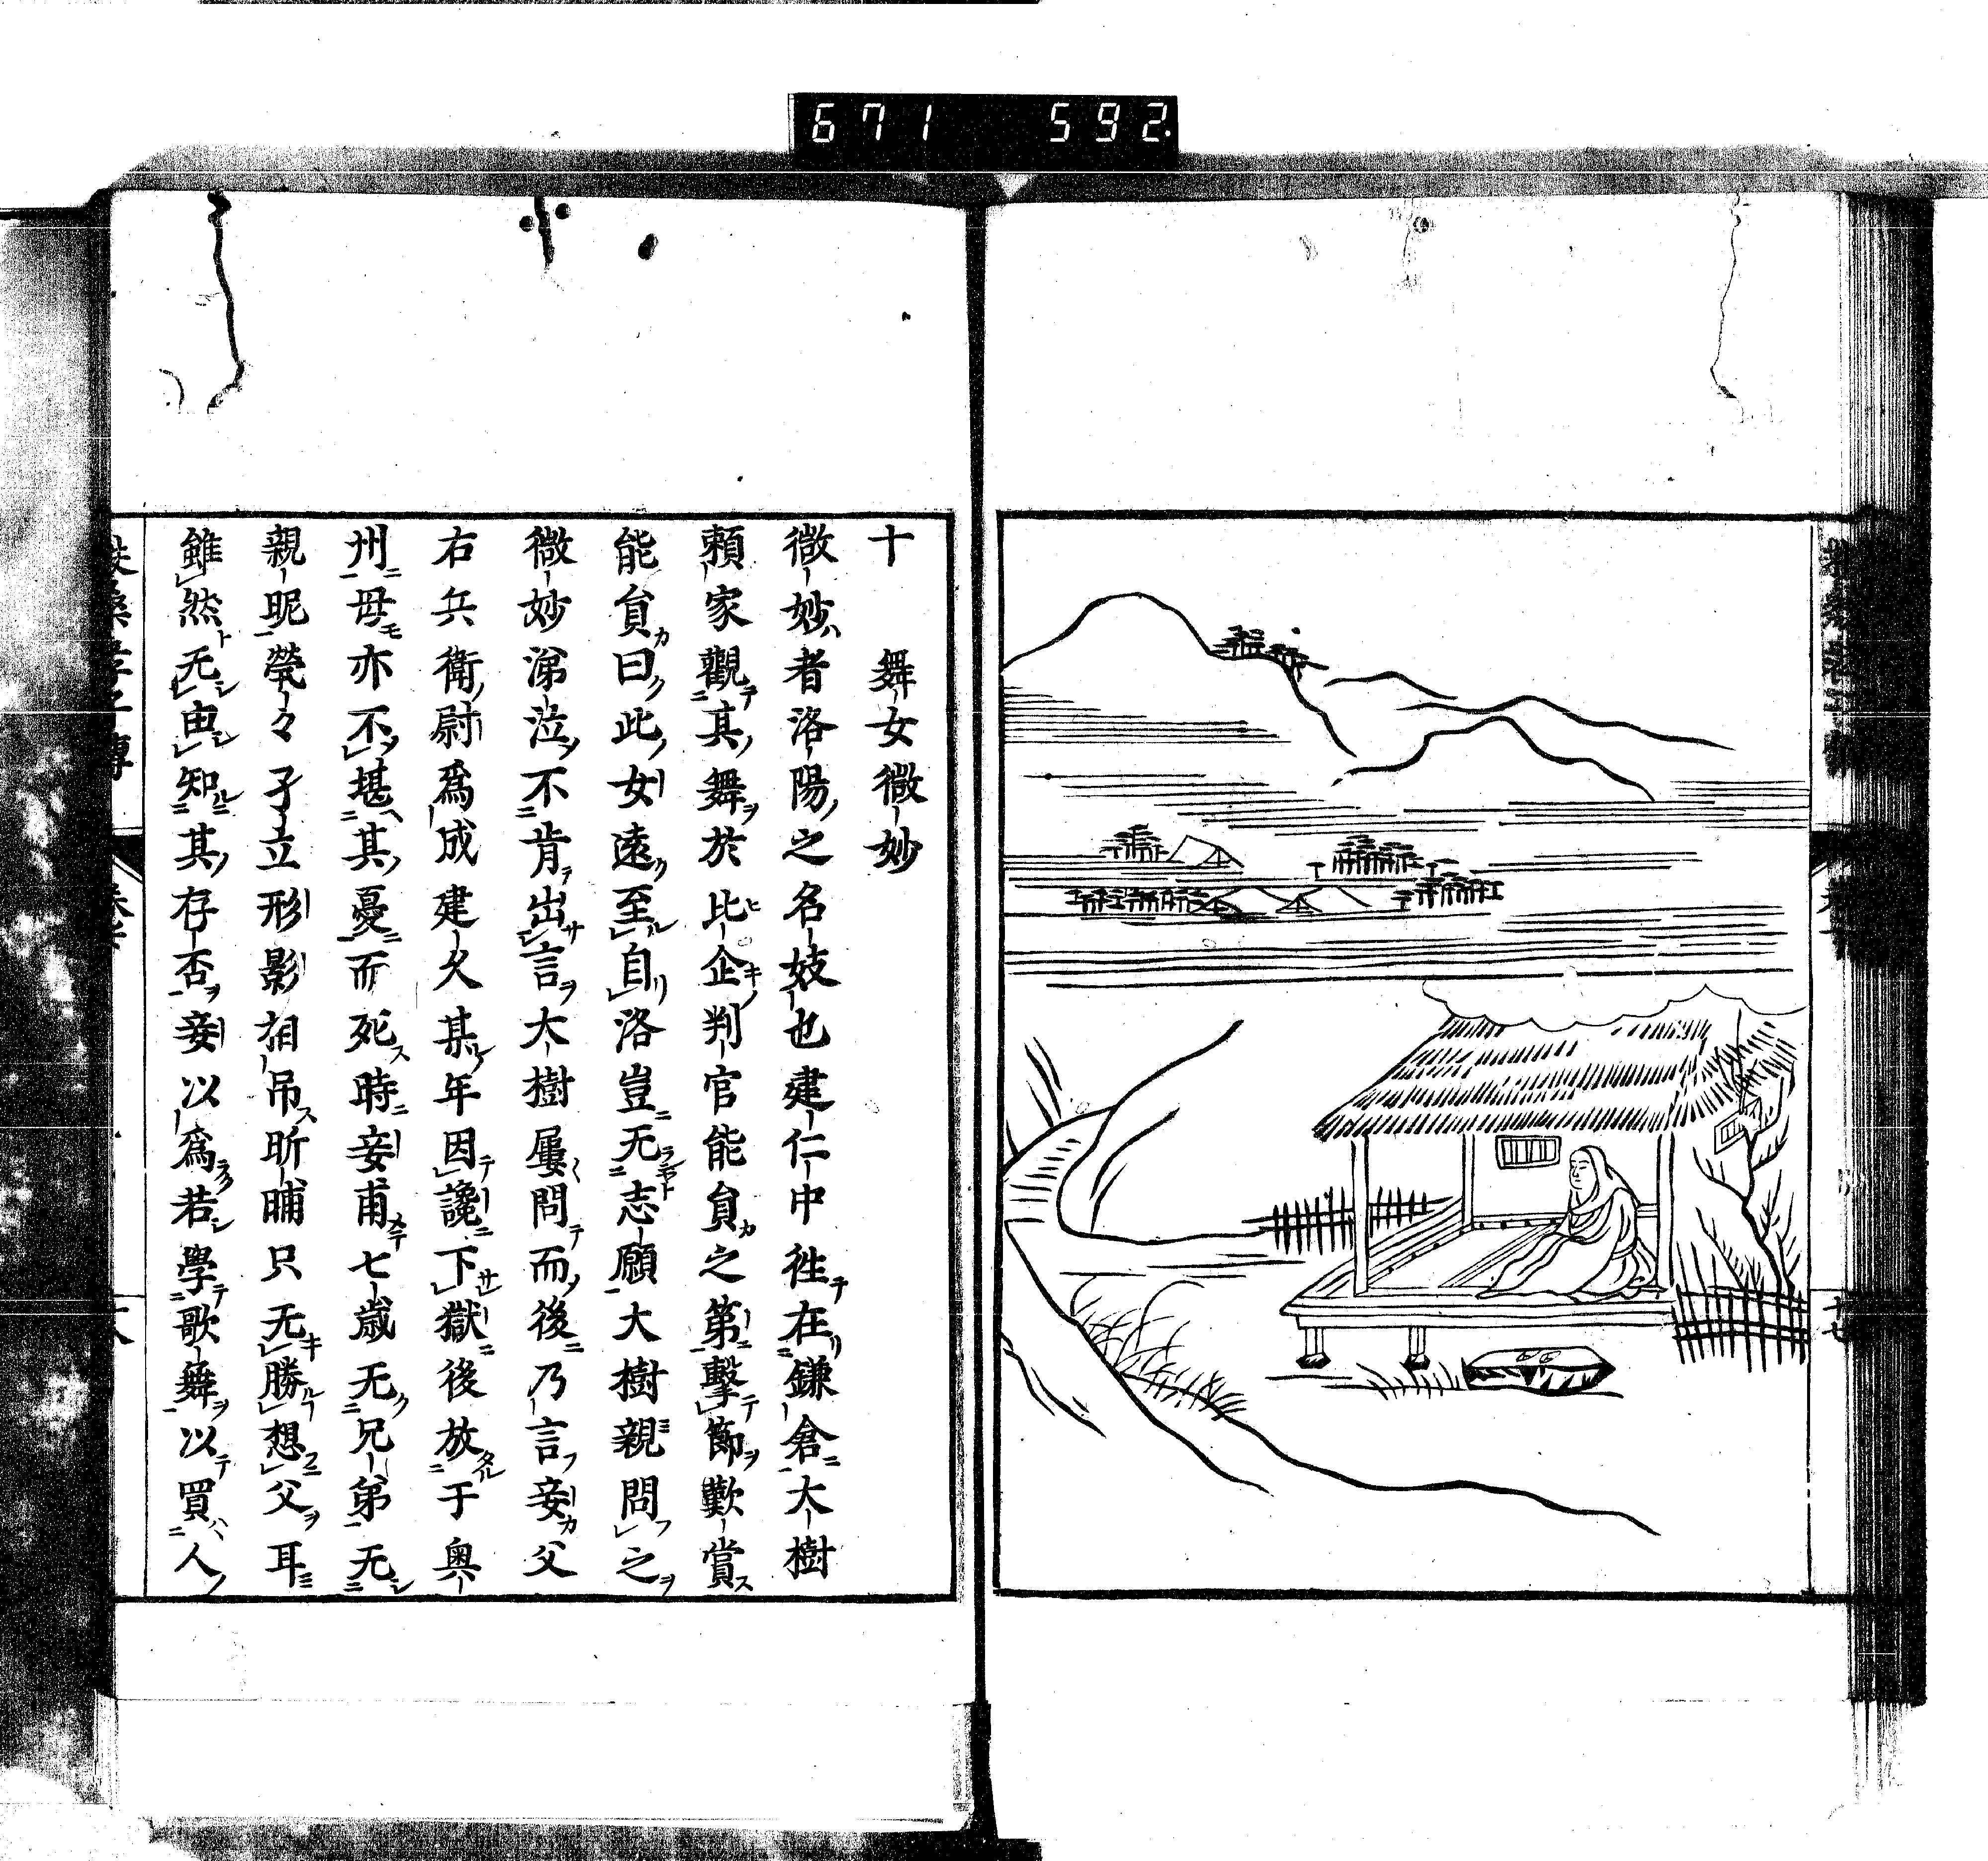 671 592
十七
十 舞女微妙
微妙者洛陽之名妓也建仁中徃在鎌倉大樹
頼家觀其舞於比企判官能貟之第擊節歎賞
能貟曰此女遠至自洛豈无志願大樹親問之
微妙涕泣不肯出言大樹屢問而後乃言妾父
右兵衛尉爲成建久某年因讒下獄後放于奥
州母亦不堪其憂而死時妾甫七歳无兄弟无
親昵煢々孑立形影相吊昕晡只无勝想父耳
雖然无由知其存否妾以爲若學歌舞以買人